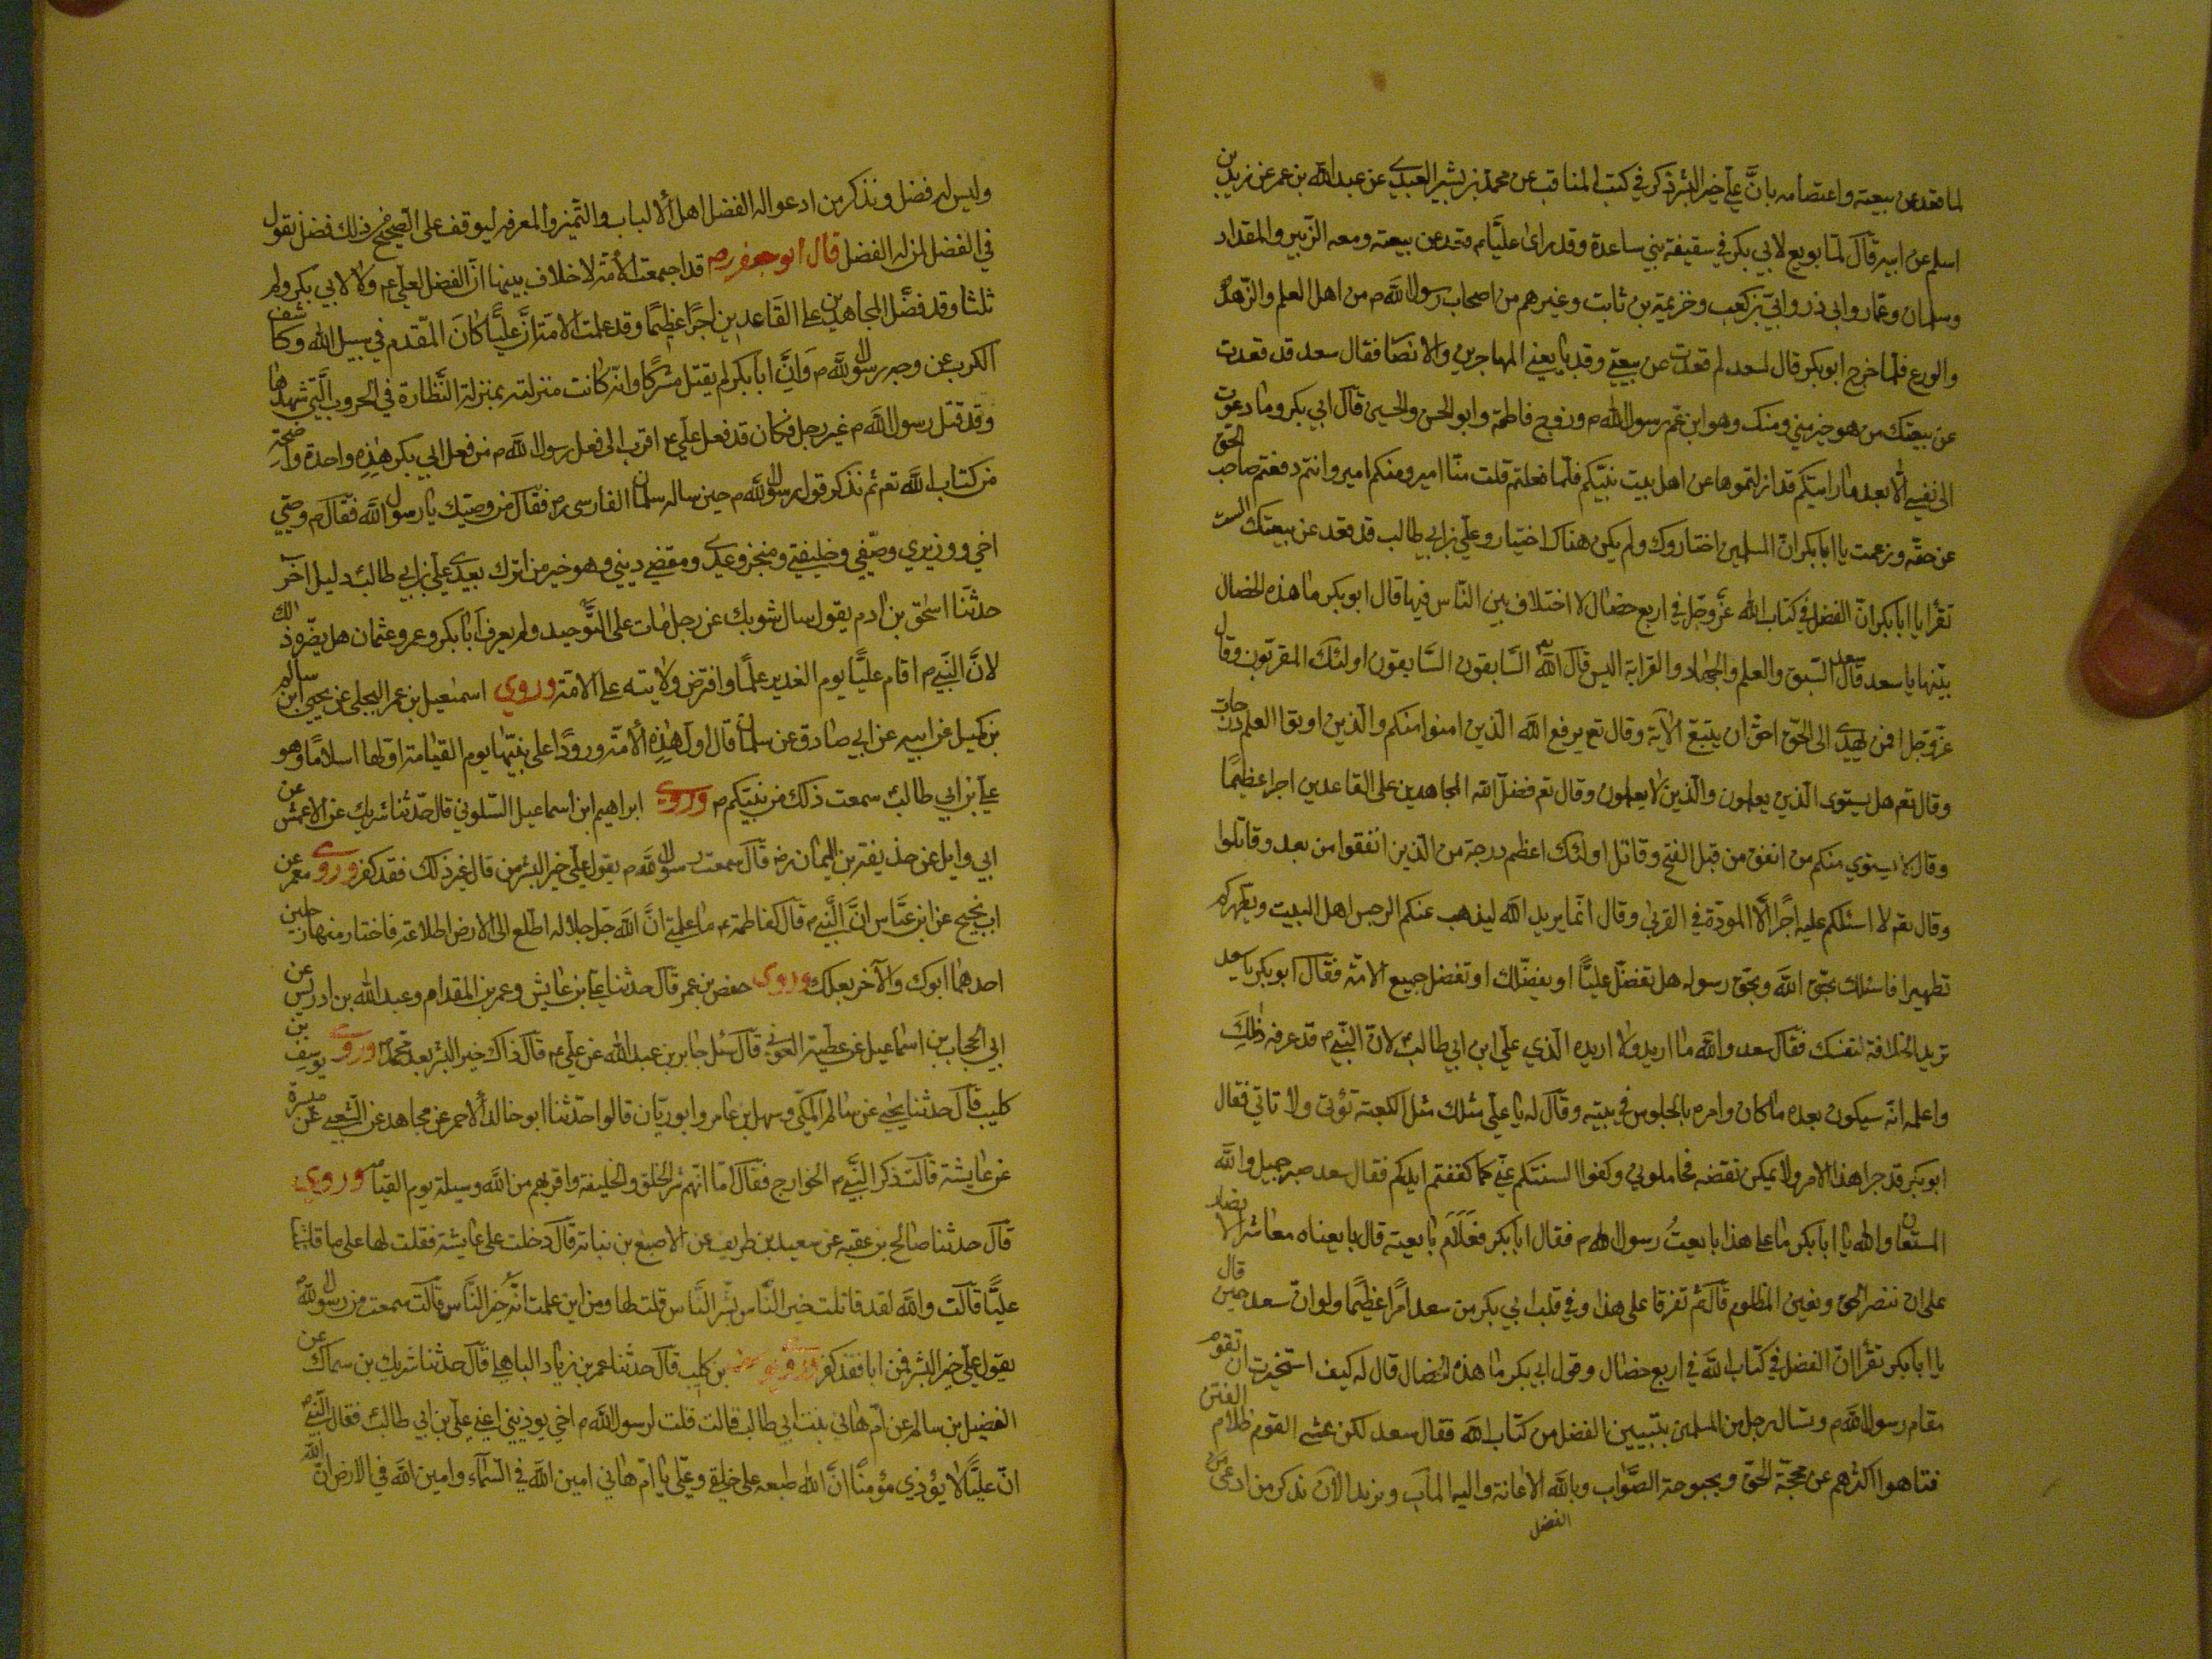 لما قعد عن بيعته واعتصامه بانَّ علي خير البشر ذكر في كتب المناقب عن محمد بن بشير العبدي عن عبد الله بن عمر عن زيد بن
اسلم عن ابيه قال لمّا بويع لابي بكر في سقيفة بني ساعدة وقد راى عليّا ع م قعد عن بيعته ومعه الزّبير والمقداد
وسلمان وعمّار وابي ذر وابيّ بن كعب وخزيمة بن ثابت وغيرهم من اصحاب رسول الله م من اهل العلم والزّهد
والورع فلمّا خرج ابو بكر قال لسعد لم قعدت عن بيعتي وقد بايعني المهاجرين والانصا فقال سعد قد قعدت
عن بيعتك من هو خير مني ومنك وهو ابن عم رسول الله م وزوج فاطمة وابو الحسن والحسين قال ابي بكر وما دعوت
الى نفسي الّا بعد ما رايتكم قد ازلتموها عن اهل بيت نبيّكم فلمّا فعلتم قلت منّا امير ومنكم امير وانتم دفعتم صاحب الحق
عن حقّه وزعمت يا ابا بكر انّ المسلمين اختاروك ولم يكن هناك اختيار وعلي بن ابي طالب قد قعد عن بيعتك الست
تقرأ يا ابا بكر انّ الفضل في كتاب الله عزّ وجلّ في اربع خصال لا اختلاف بين النّاس فيها قال ابو بكر ما هذه الخصال
بيّنها يا سعد قال سعد السّبق والعلم والجهاد والقرابة اليس قال الله تع السّابقون السّابقون اولئك المقرّبون وقال
عزّ وجلّ افمن يهدي الى الحقّ احقّ ان يتبع الآية وقال تع يرفع الله الذين امنوا منكم والذين اوتوا العلم درجات
وقال تع هل يستوي الذين يعلمون والذين لا يعلمون وقال تع فضل الله المجاهدين على القاعدين اجرا عظيمًا
وقال لا يستوي منكم من انفق من قبل الفتح وقاتل اولئك اعظم درجة من الذين انفقوا من بعد وقاتلوا
وقال تع لا اسئلكم عليه اجرًا الّا المودّة في القربى وقال انّما يريد الله ليذهب عنكم الرجس اهل البيت ويطهركم
تطهيرا فاسئلك بحقّ الله وبحق رسوله هل تفضل عليًّا او يفضّلك او تفضل جميع الامّة فقال ابو بكر يا سعد
تريد الخلافة لنفسك فقال سعد والله ما اريد ولا اريده الّذي علي ابن ابي طالب لانّ النّبي م قد عرفه ذلك
واعلمه انّه سيكون بعده ما كان وامره بالجلوس في بيته وقال له يا علي مثلك مثل الكعبة تؤتى ولا تاتي فقال
ابو بكر قد جرا هذا الامر ولا يمكن نقضه فحاملوني وكفوا السنتكم عنّي كما كففتم ايديكم فقال سعد صبر جميل والله
المستعان والله يا ابا بكر ما على هذا بايعتُ رسول الله م فقال ابا بكر فعَلَامَ بايعته قال بايعناه معاشر الانصار
على ان ننصر الحق ونعين المظلوم قال ثم تفرقا على هذا وفي قلب ابي بكر من سعد امرًا عظيمًا ولو انّ سعد حين قال
يا ابا بكر تقرأ انّ الفضل في كتاب الله في اربع خصال وقول ابي بكر ما هذه الخصال قال له كيف استخيرت ان تقوم
مقام رسول الله م وتسال رجل من المسلمين بتبيين الفضل من كتاب الله فقال سعد لكن غشى القوم ظلام الفتن
فتاهوا اكثرهم عن محجّة الحق وبحبوحة الصّواب وبالله الاعانة واليه الماب ونريد الآن نذكر من ادعى من
الفضل
وليس له فضل ونذكر من ادعوا له الفضل اهل الالباب والتّميز والمعرفه ليوقف على الصّحيح من ذلك فضل نقول
في الفضل لمن له الفضل قال ابو جعفر ره قد اجمعت الامّة لا خلاف بينها انّ الفضل لعلي ع ولا لابي بكر ولم
ثلثا وقد فضّل المجاهدين على القاعدين اجرًا عظيمًا وقد علمت الامّة انّ عليًّا كان المقدم في سبيل الله وكاشف
الكرب عن وجه رسول الله م وانّ ابا بكر لم يقتل مشركا وانّه كانت منزلته بمنزلة النّظارة في الحروب الّتي شهدها
وقد قتل رسول الله م غير رجل فكان قد فعل علي ع اقرب الى فعل رسول الله م من فعل ابي بكر هذه واحدة واضحة
من كتاب الله تع ثم نذكر قول رسول الله م حين ساله سلمان الفارسي ره فقال من وصيك يا رسول الله فقال م وصيّي
اخي ووزيري وصفيي وخليفتي ومنجز وعدي ومقضي ديني وهو خير من اترك بعدي علي بن ابي طالب دليل آخر
حدثنا اسحق بن ادم يقول سال شريك عن رجل مات على التّوحيد ولم يعرف ابا بكر وعمر وعثمان هل يضرّه ذلك
لانّ النّبي م اقام عليًّا يوم الغدير علمًا وافترض ولايته على الامّة وروي اسمعيل بن عمر البجلي عن يحيى ابن سالم
بن كهيل عن ابيه عن ابي صادق عن سلمان قال اول هذه الامّة ورودًا على نبيّها يوم القيامة اولها اسلامًا وهو
علي بن ابي طالب سمعت ذلك من نبيّكم م وروي ابراهيم ابن اسماعيل السّلوني قال حدّثنا شريك عن الاعمش عن
ابي وايل عن حذيفة بن اليمان رض قال سمعت رسول الله م يقول علي خير البشر من قال غير ذلك فقد كفر وروى معمر عن
ابن نجيح عن ابن عبّاس انَّ النّبي م قال لفاطمة ع ما علمتي انَّ الله جلّ جلاله اطّلع الى الارض اطلاعة فاختار منها رجلين
احدهما ابوك والآخر بعلك وروى حفص بن عمر قال حدثنا علي بن عايش وعمر بن المقدام وعبد الله بن ادريس عن
ابي الحجاب بن اسماعيل عن عطية العوفي قال سئل جابر بن عبد الله عن علي ع قال ذاك خير البشر بعد محمد م وروى يوسف بن
كليب قال حدثنا يحيى عن سالم المكّي وسهل بن عامر وابو ريّان قالوا حدّثنا ابو خالد الاحمر عن مجاهد عن الشّعبي عن
عن عايشة قالت ذكر النّبي م الخوارج فقال امّا انّهم شر الخلق والخليفة واقربهم من الله وسيلة يوم القيامة وروي
قال حدثنا صالح بن عقبه عن سعيد بن طريف عن الاصبغ بن نباتة قال دخلت على عايشة فقلت لها على ما قاتلتما
عليًّا قالت والله لقد قاتلت خير النّاس بشر النّاس قلت لها ومن اين علمت انّه خير النّاس قالت سمعت من رسول الله م
يقول علي خير البشر فمن ابا فقد كفر بن كليب قال حدثنا عمر بن زياد الباهلي قال حدثنا شريك بن سماك عن
الفضيل بن سالم عن امّ هاني بنت ابي طالب قالت قلت لرسول الله م اخي يوذيني اعني علي بن ابي طالب فقال النّبي م
انّ عليًّا لا يؤذي مؤمنًا انَّ الله طبعه على خلقي وعلي يا امّ هاني امين الله في السّماء وامين الله في الارض انّ الله